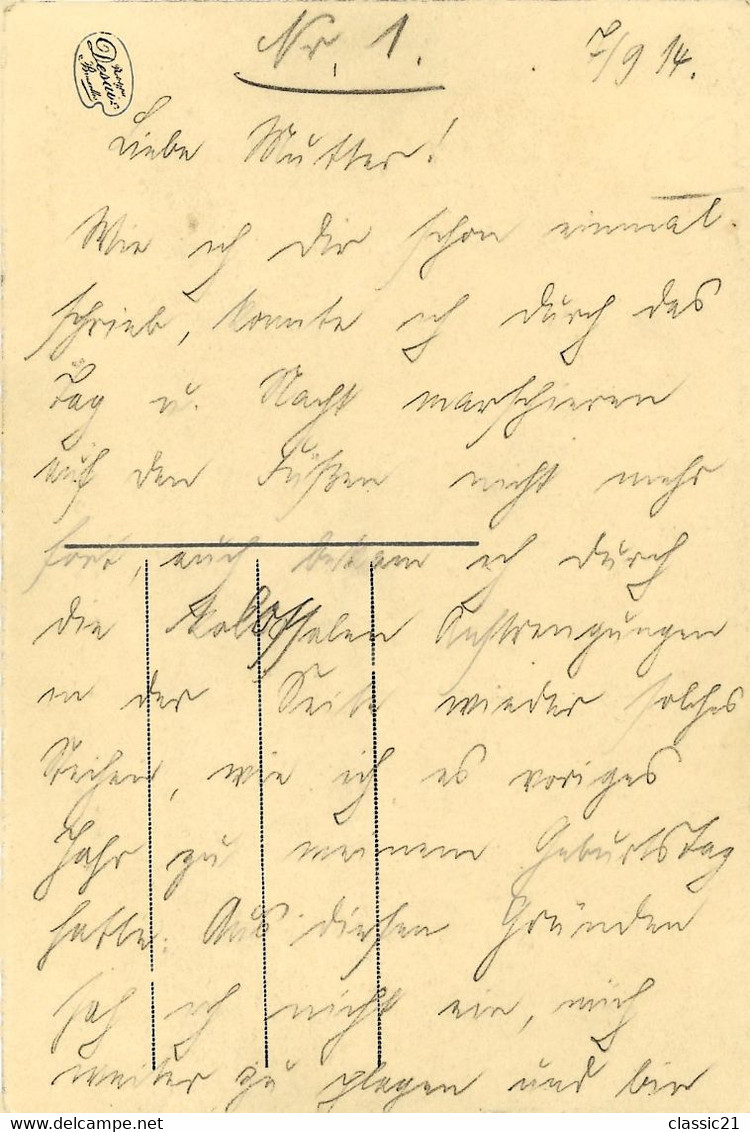 Nr. 1.
7/9 14.
Liebe Mutter!
Wie ich dir schon einmal
schrieb, konnte ich durch das
Tag u. Nacht marschieren
auf den Füßen nicht mehr
fort, auch bekam ich durch
die kolossalen Anstrengungen
in der Seite wieder solches
Stechen, wie ich es voriges
Jahr zu meinem Geburtstag
hatte. Aus diesen Gründen
sah ich nicht ein, mich
weiter zu plagen und bin
classic21